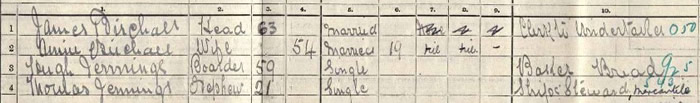 1. 2. 3. 4. 5. 6. 7. 8. 9. 10.
1 James Birchall Head 63 Married Clerk to Undertaker 050
2 Annie Birchall Wife 54 Married 19 nil nil -
3 Hugh Jennings Boarder 59 Single Baker Bread
4 Thomas Jennings Nephew 21 Single Ships Steward, mercantile